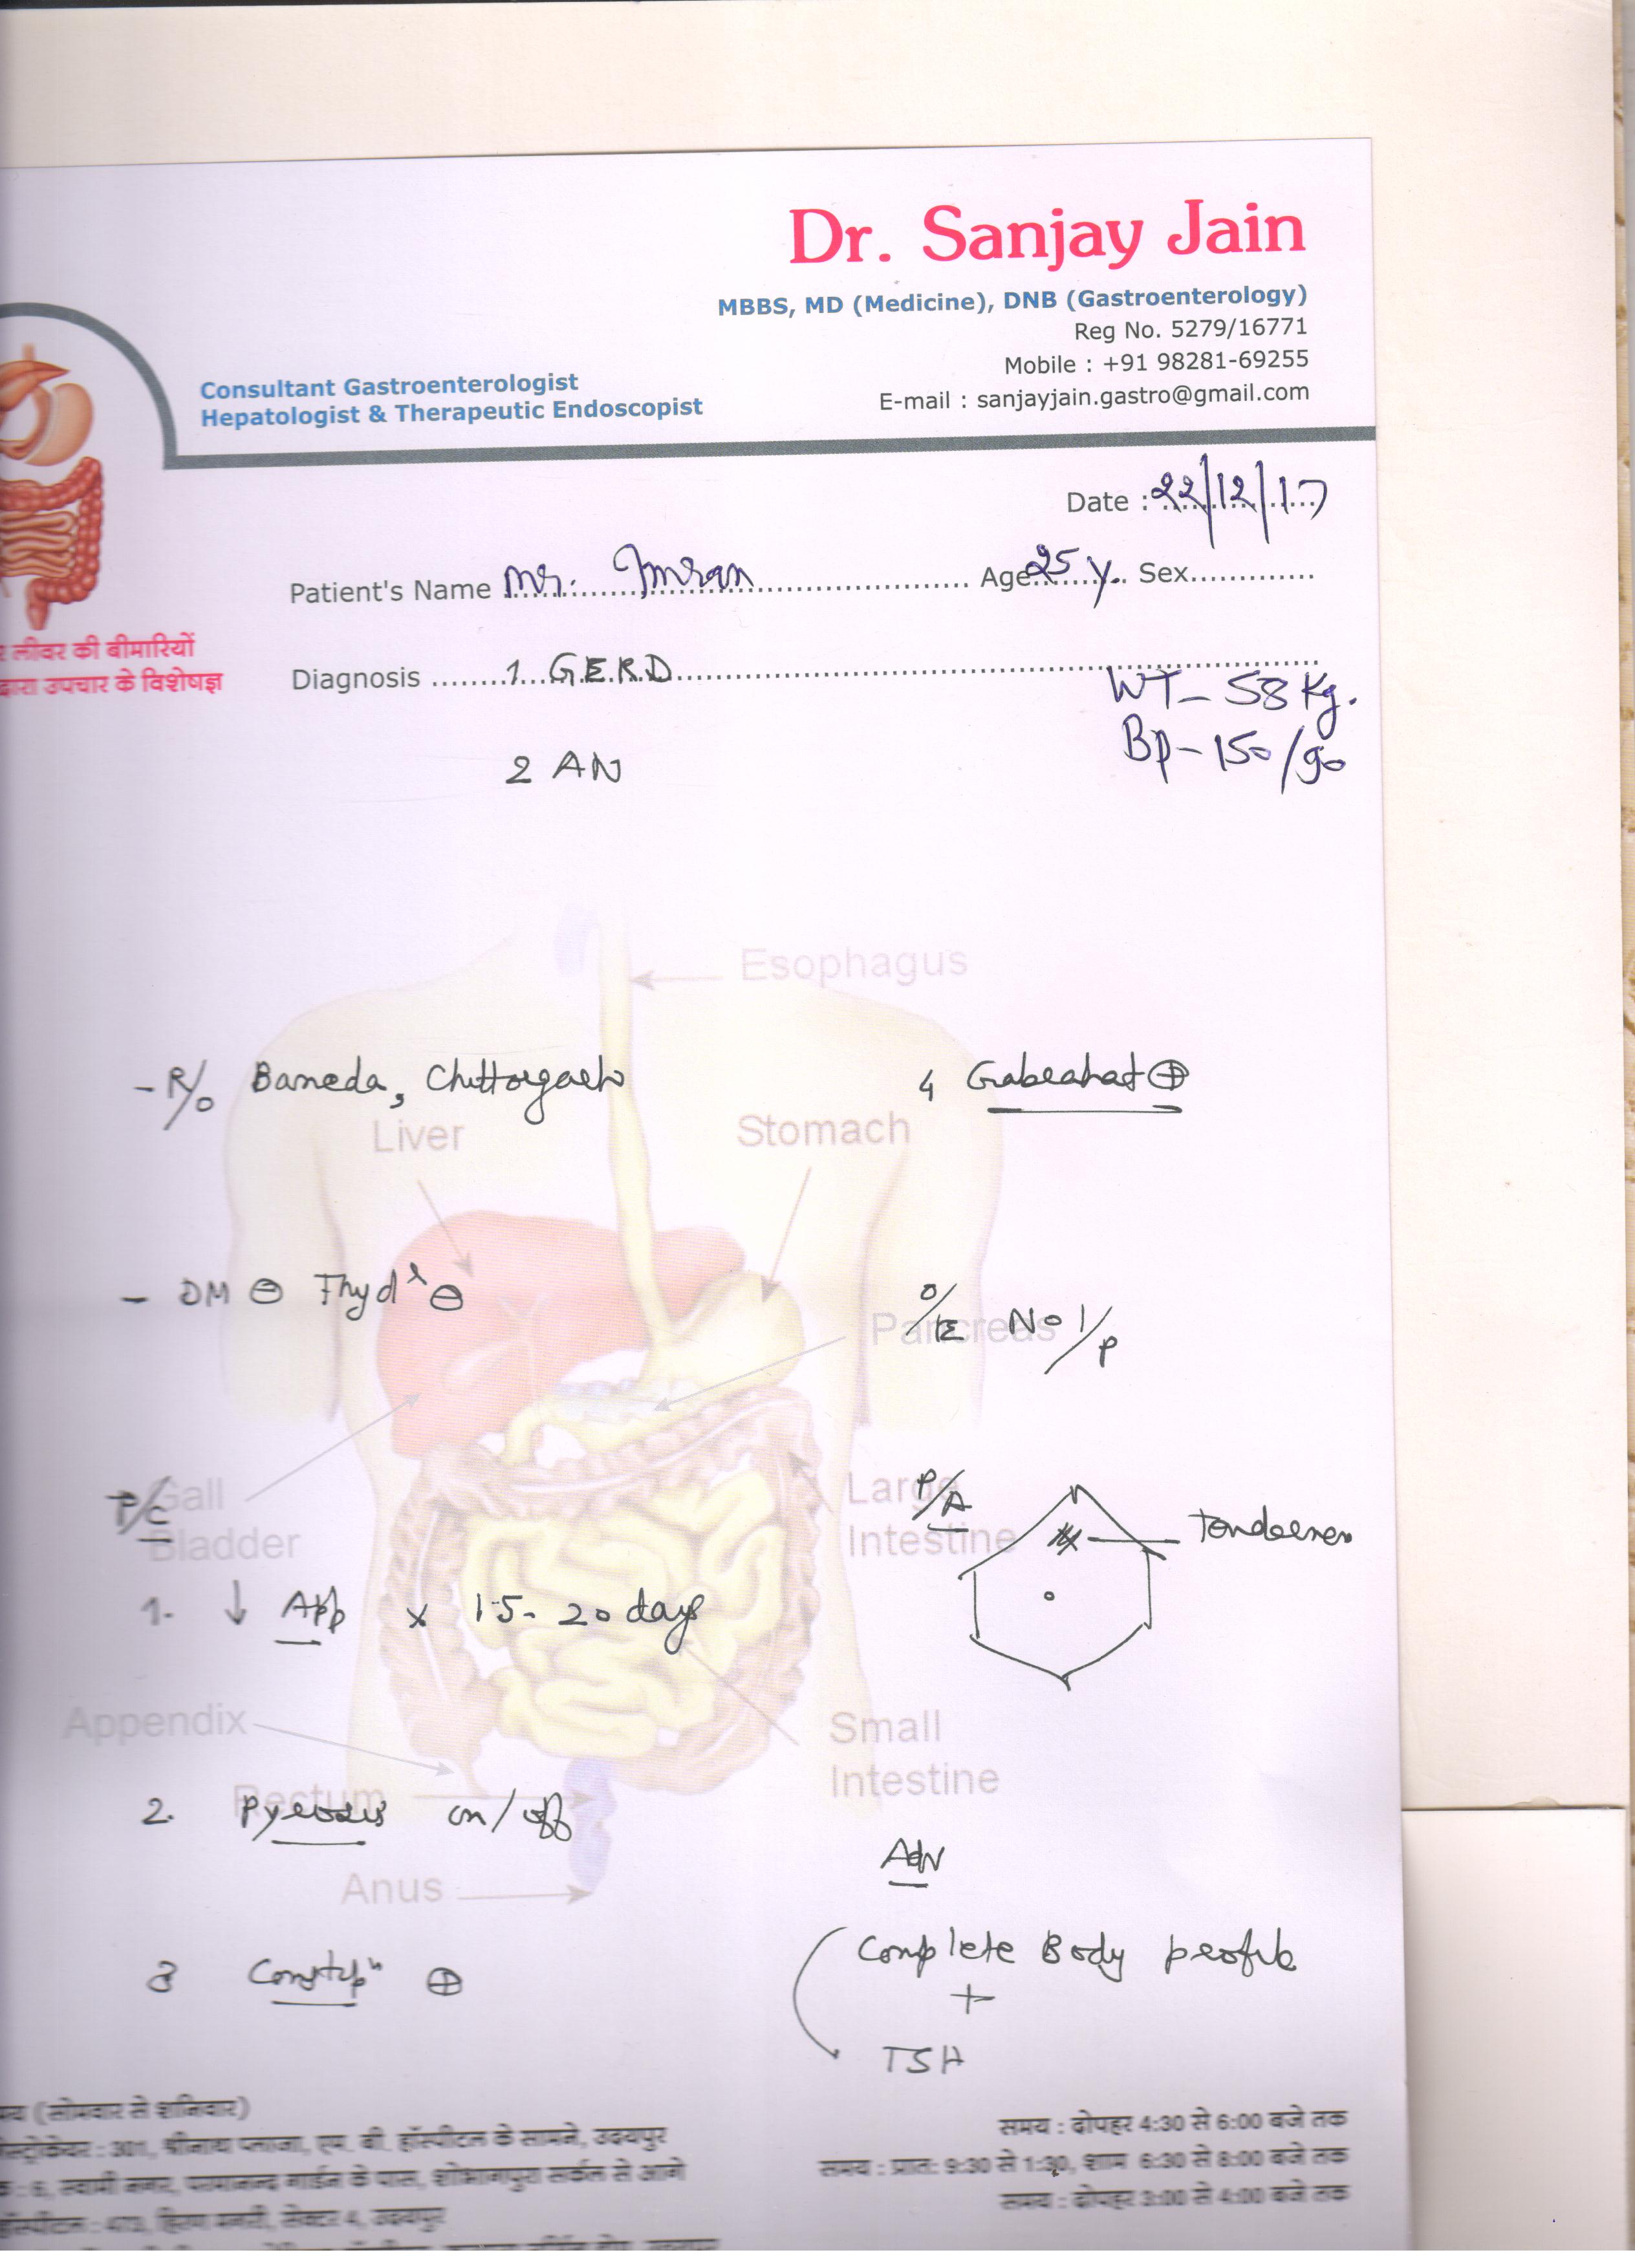 Dr. Sanjay Jain
MBBS, MD (Medicine), DNB (Gastroenterology)
Reg No. 5279/16771
Mobile : +91 98281-69255
E-mail : sanjayjain.gastro@gmail.com
Consultant Gastroenterologist
Hepatologist & Therapeutic Endoscopist
Date : 22/12/17
Patient's Name Mr. Imran Age 25 y. Sex
लीवर की बीमारियों
द्वारा उपचार के विशेषज्ञ
Diagnosis 1 G.E.R.D
WT- 58 Kg.
Bp- 150/90
2 AN
Esophagus
- R/o Baneda, Chittorgarh
4 Gabrahat ⊕
Liver
Stomach
- DM ⊖ Thyd ⊖
O/E No I/P
Pancreas
P/C
Gall
Bladder
P/A
Tenderness
Large
Intestine
1. ↓ App x 15-20 days
Appendix
Small
Intestine
Rectum
2. Pyrosis on/off
Anus
Adv
3 Constipn ⊕
Complete Body profile
+
TSH
(सोमवार से शनिवार)
समय : दोपहर 4:30 से 6:00 बजे तक
301, श्रीनाथ प्लाजा, एम. बी. हॉस्पीटल के सामने, उदयपुर
समय : प्रातः 9:30 से 1:30, शाम 6:30 से 8:00 बजे तक
6, स्वामी नगर, परमानन्द गार्डन के पास, शोभागपुरा सर्कल से आगे
समय : दोपहर 3:00 से 4:00 बजे तक
हॉस्पीटल : 473, हिरण मगरी, सेक्टर 4, उदयपुर